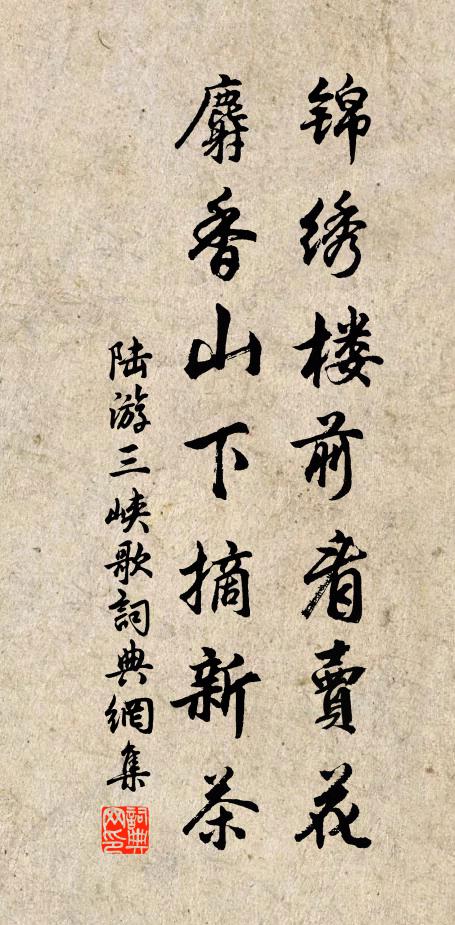 锦绣楼前看賣花
麝香山下摘新茶
陆游三峡歌詞典網集
詞典网印